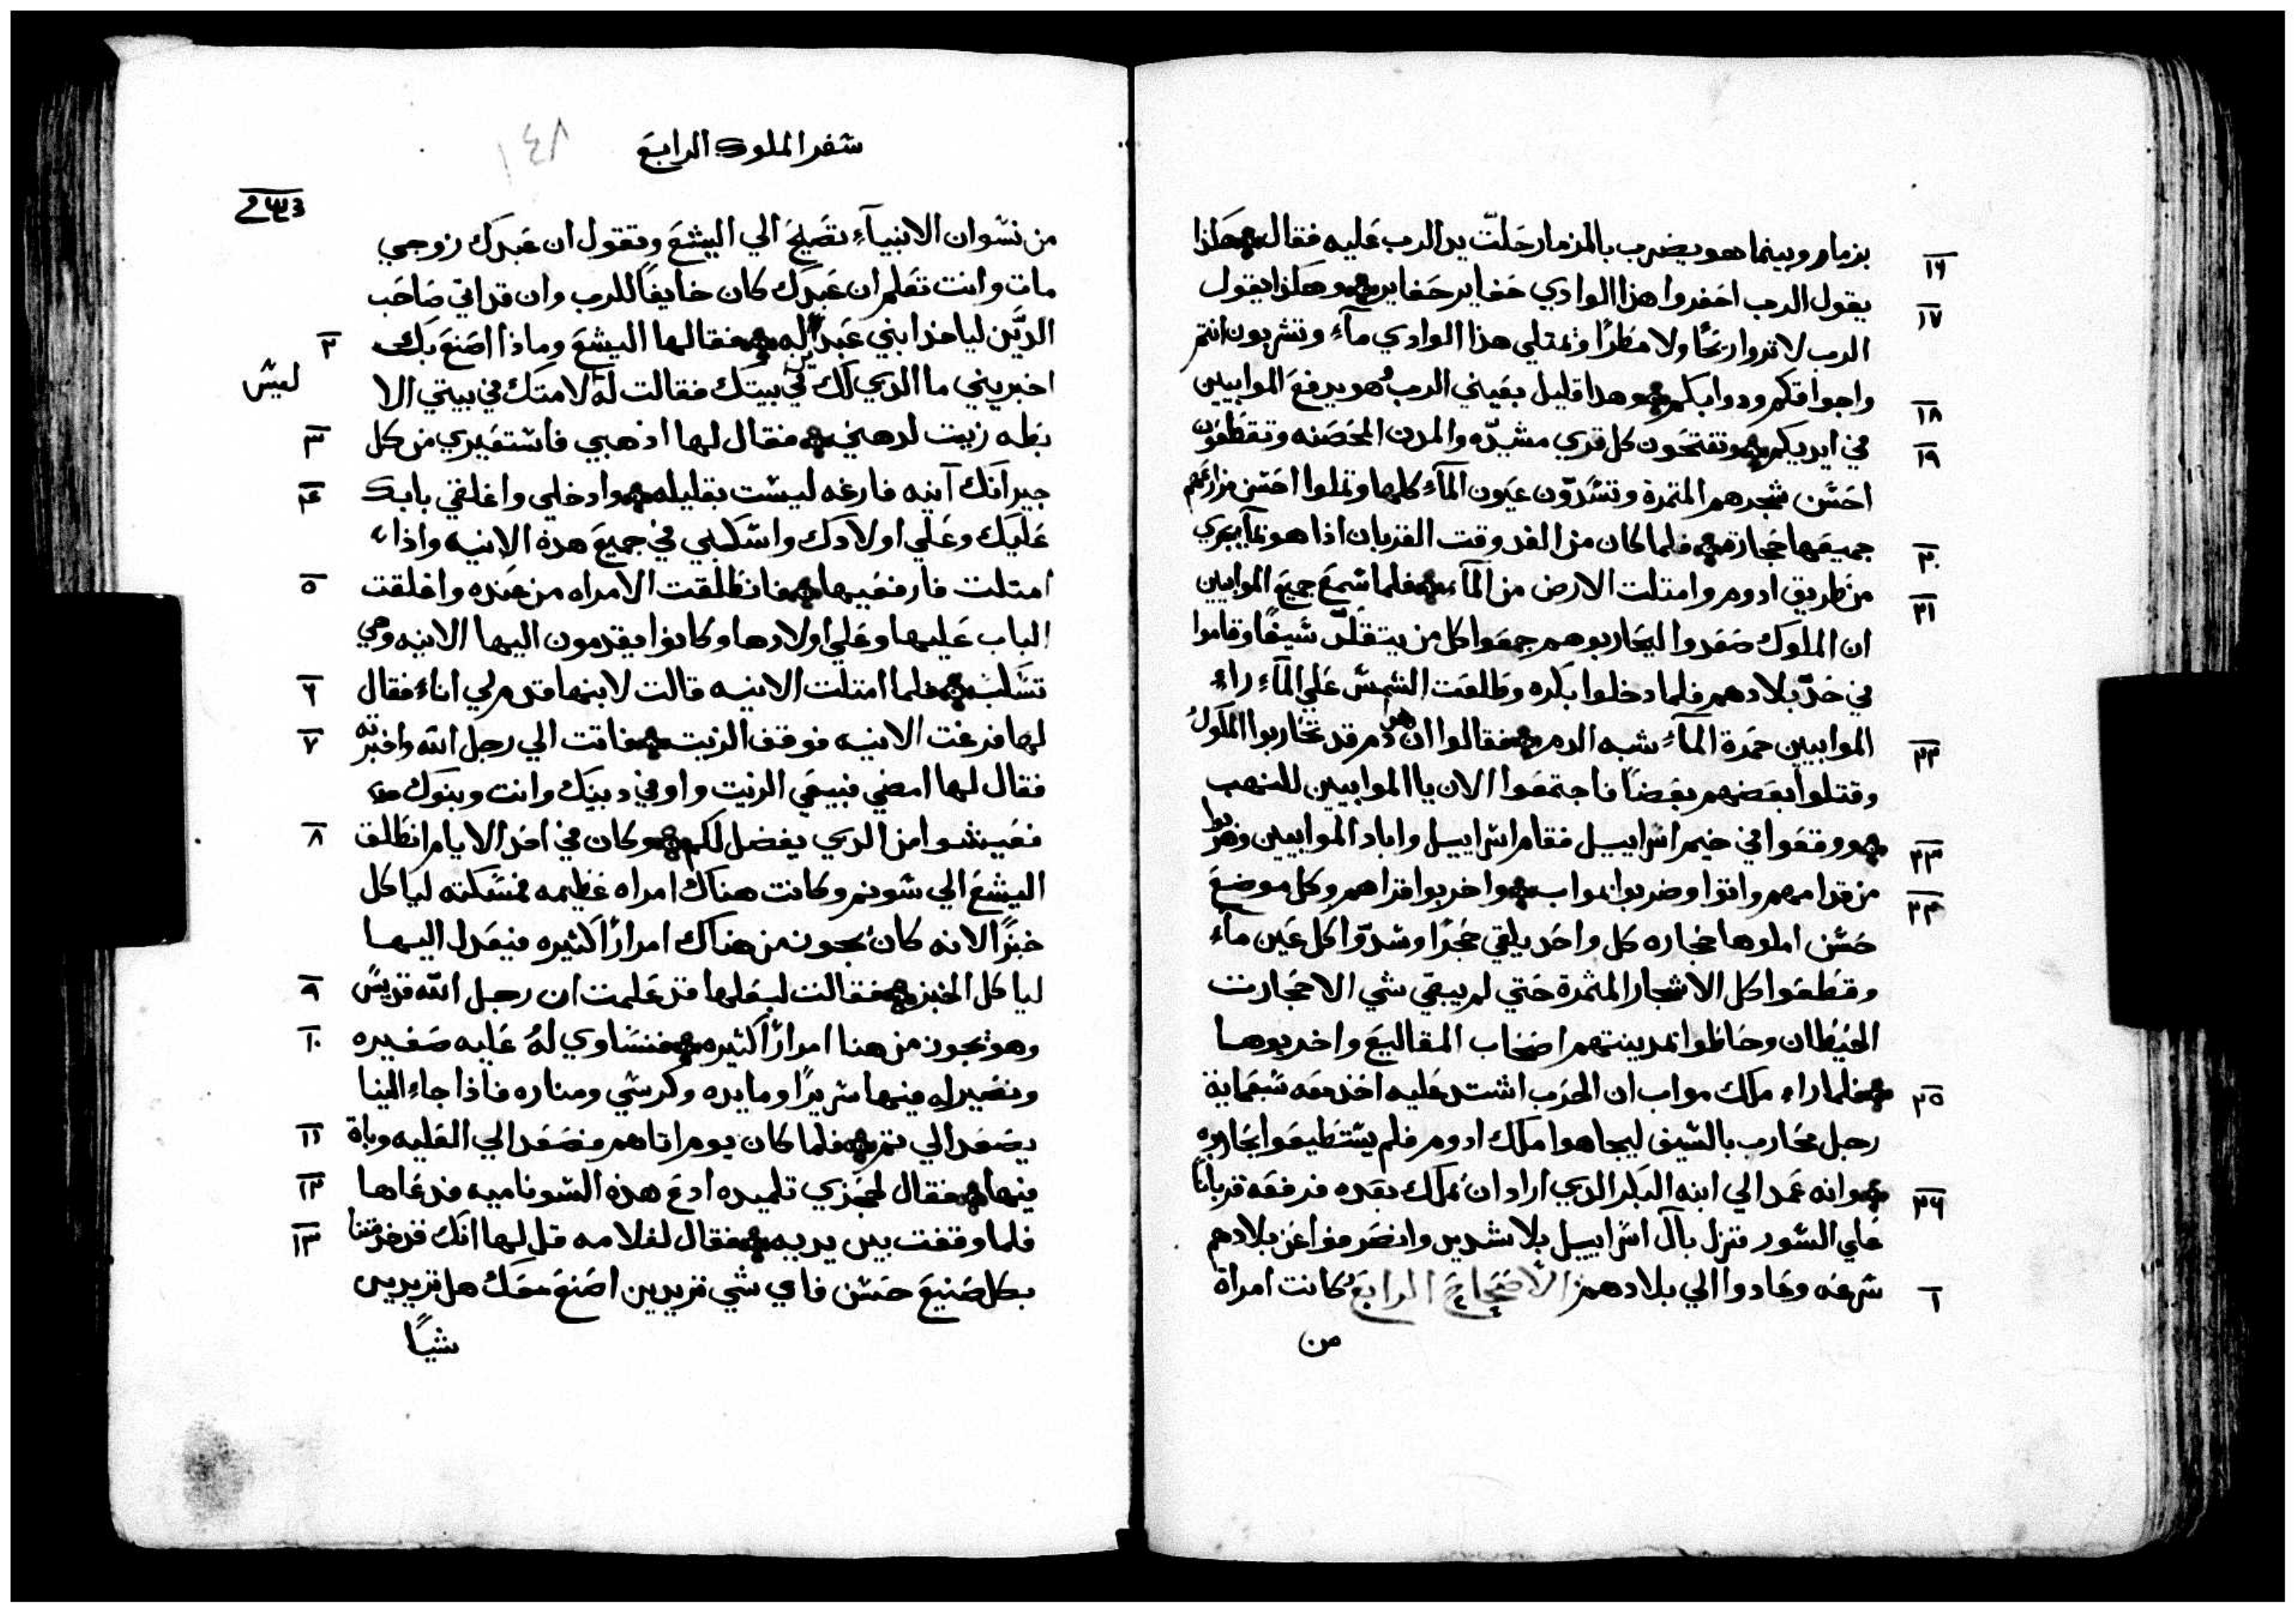 بزمار وبينما هو يضرب بالمزمار حَلّت يد الرب عَليه فقال هكذا
١٦
يقول الرب احَفروا هذا الوادي حَفاير حَفاير وهكذا يقول
١٧
الرب لا تروا ريحًا ولا مطرًا ويمتلي هذا الوادي مآء وتشربون انتم
واجواقكم ودوابكم وهدا قليل بعَيني الرب هو يدفعَ الموابيين
١٨
في ايديكم وتفتحَون كل قري مشيدّه والمدن المحَصَنه وتقطعَون
١٩
احَسَن شجرهم المتمرة وتسَدّون عيَون المآء كلها وتملوا احسَن مزارعَهم
جميعَها حَجارة فلما كان من الغد وقت القربان اذا هو بمآ يجري
٢٠
من طريق ادوم وامتلت الارض من المآء فلما سَمعَ جميعَ الموابيين
٢١
ان الملوك صَعَدوا ليحَاربوهم جمعَوا كل من يتقلدّ سَيفًا وقاموا
في حَدّ بلادهم فلما دخلوا بكره وطلعَت الشمسَ عَلي المآء راء
الموابيين حَمرة المآء شبه الدم فقالوا ان هدا دم قد تحَاربوا الملوك
٢٢
وقتلوا بعَضهم بعَضًا فاجتمعَوا الان يا الموابيين للنهب
ووقعَوا في خيم اسَراييل فقام اسَراييل واباد الموابيين وهربوا
٢٣
من قدامهم واتوا وضربوا مواب واخربوا قراهم وكل موضعَ
٢٤
حَسَن املوها حَجاره كل واحَد يلقي حَجرًا وسَدّوا كل عَين مآء
وقطعَوا كل الاشجار المثمرة حَتي لم يبقي شي الا حَجارت
الحَيَطان وحَاطوا بمدينتهم اصَحَاب المقاليعَ واخربوها
فلما راء ملك مواب ان الحَرب اشتد عَليه اخذ معَه سَبعَماية
٢٥
رجل محَارب بالسَيف ليجاهوا ملك ادوم فلم يسَتطيعَوا يحَاربوه
وانه عَمد الي ابنه البكر الذي اراد ان يملك بعَده فرفعَه قربانًا
٢٦
عَلي السَور فنزل بال اسَراييل بلا شديد وانصَرفوا عَن بلادهم
سَرعَه وعَادوا الي بلادهم الاصَحَاح الرابعَ كانت امراة
١
من
سَفر الملوك الرابعَ
١٤٨
من نسَوان الانبيآء تصَيح الي اليشعَ وتقول ان عَبدك زوجي
مات وانت تعَلم ان عَبدك كان خايفًا للرب وان قد اتي صَاحَب
الديَّن لياخذ ابني عَبدًا له فقال لها اليشعَ وماذا اصَنعَ بك
٢
اخبريني ما الدي لك في بيتك فقالت له لامتك في بيتي الا
ليسَ
بطه زيت لدهني فقال لها اذهبي فاسَتعَيري من كل
٣
جيرانك آنيه فارغه ليسَت بقليله وادخلي واغلقي بابك
٤
عَليك وعَلي اولادك واسَكبي في جميعَ هدة الانيه واذا
امتلت فارفعَيها فانطلقت الامراه من عَنده واغلقت
٥
الباب عَليها وعَلي اولادها وكانوا يقدمون اليها الانيه وهي
تسَكب فلما امتلت الانيه قالت لابنها قدم لي اناء فقال
٦
لها فرغت الانيه فوقف الزيت فاتت الي رجل الله واخبرته
٧
فقال لها امضي فبيعَي الزيت واوفي دينك وانت وبنوك
فعَيشوا من الدي يفضل لكم وكان في احَد الايام انطلق
٨
اليشعَ الي شونم وكانت هناك امراه عَظيمه فمسَكته لياكل
خبزًا لانه كان يجوز من هناك امرارًا كثيره فيعَدل اليها
لياكل الخبز فقالت لبعَلها قد عَلمت ان رجل الله قديسً
٩
وهو يجوز من هنا امرارًا كثيره فنسَاوي لهُ عَليه صَغيره
١٠
ونصَير له فيها سَريرًا ومايده وكرسَي ومناره فاذا جاء الينا
يصَعَد الي تم فلما كان يوم اتاهم فصَعَد الي العَليه وبات
١١
فيها فقال لجَحَزي تلميده ادعَ هذه السَوناميه فدعَاها
١٢
فلما وقفت بين يديه فقال لغلامه قل لها انك قد خدمتنا
١٣
بكل صَنيعَ حَسَن فاي شي تريدين اصَنعَ معَك هل تريدين
شيًا